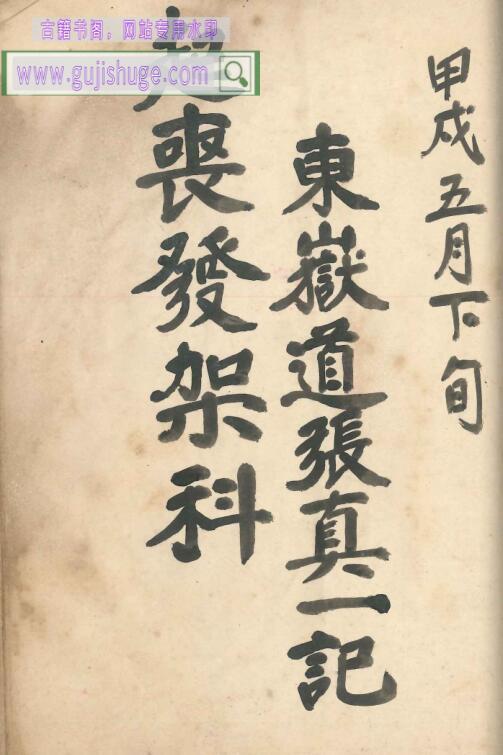 古籍书阁，网站专用水印
www.gujishuge.com
甲戌五月下旬
東嶽道張真一記
起喪發架科